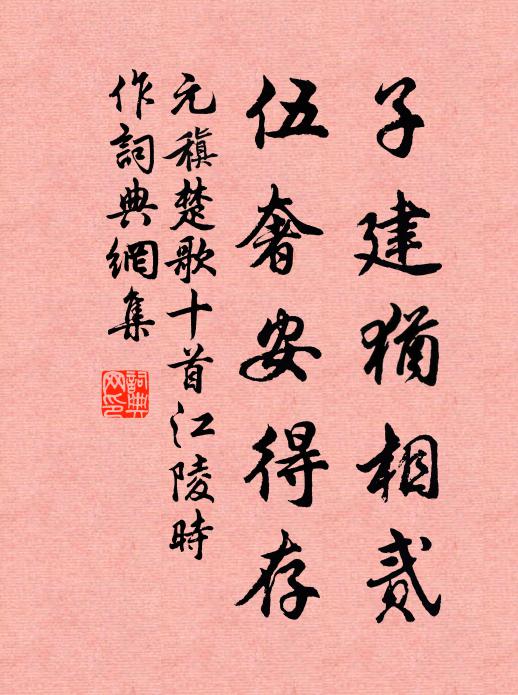 子建猶相貳
伍奢安得存
元稹楚歌十首江陵時
作詞典網集
詞典
网印